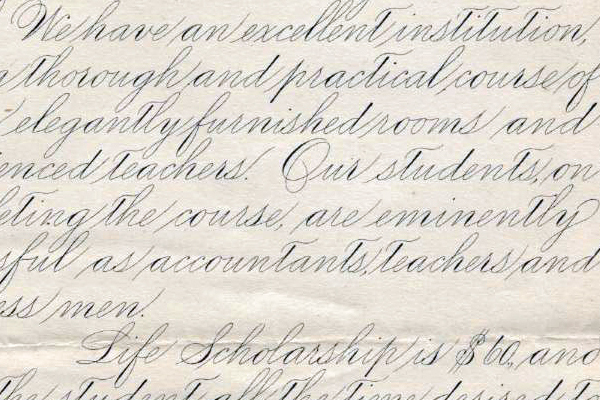 We have an excellent institution,
a thorough and practical course of
elegantly furnished rooms and
enced teachers. Our students, on
eting the course, are eminently
sful as accountants, teachers and
ess men.
Life Scholarship is $60, and
the student all the time desired to